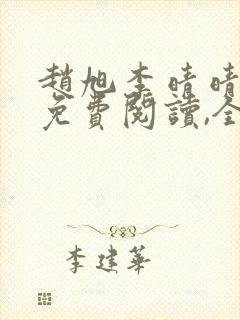 趙旭李晴晴
免費閱讀,全
李建華